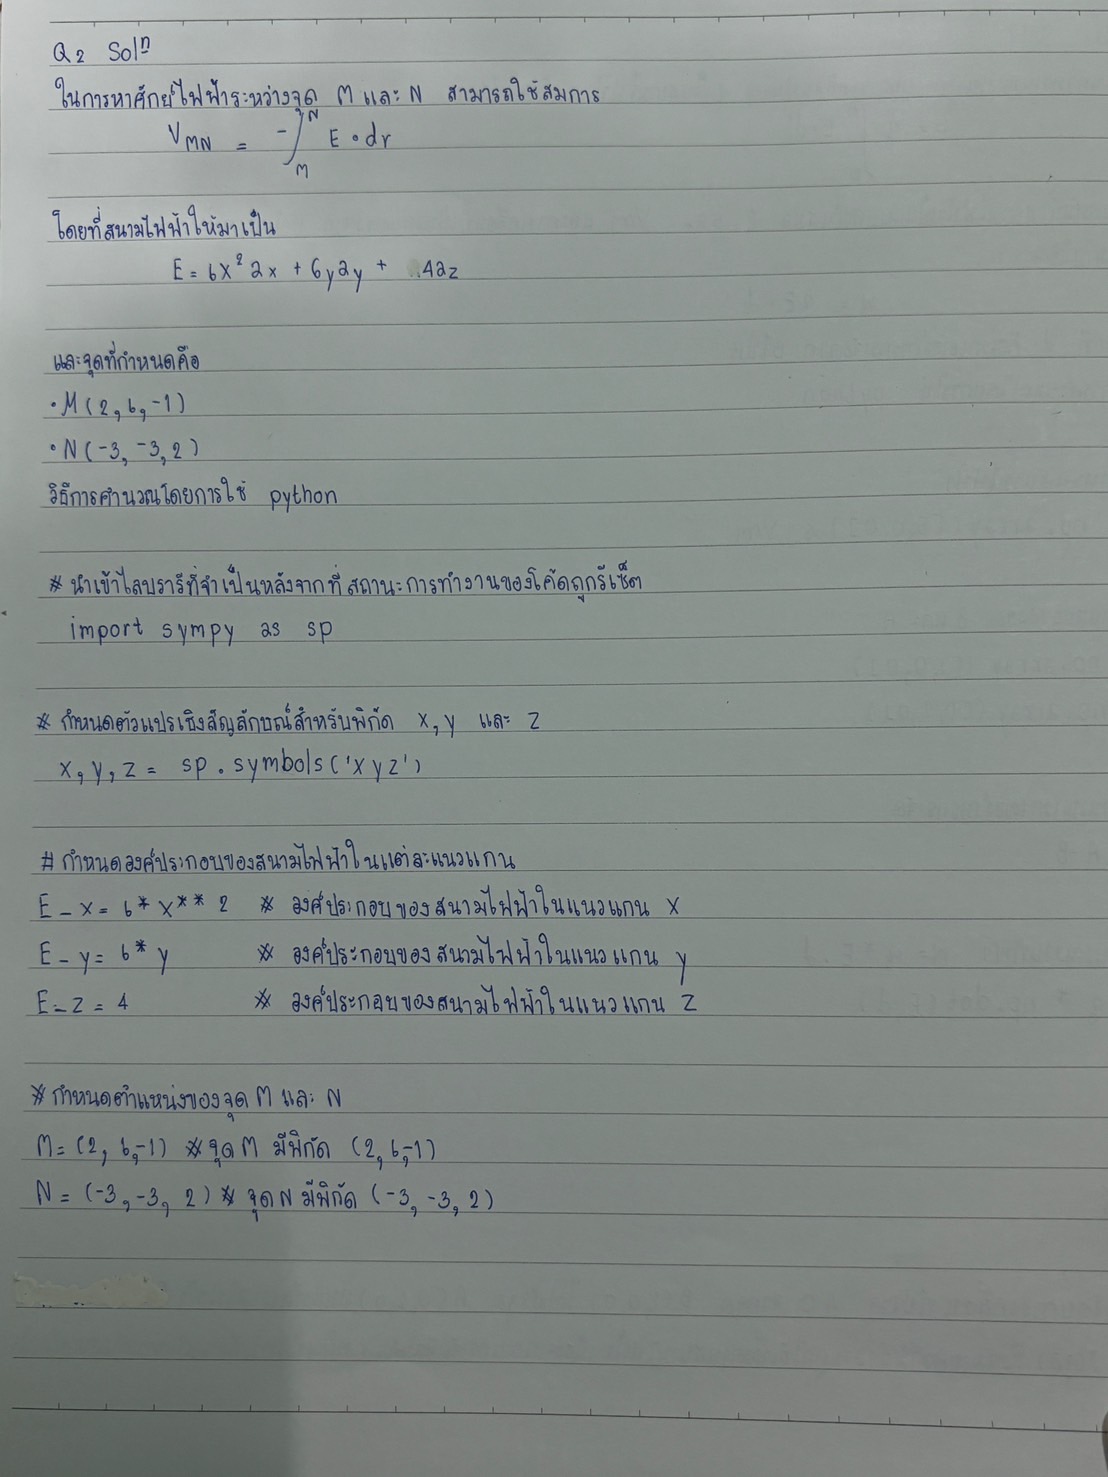 Q2 Solⁿ
ในการหาศักย์ไฟฟ้าระหว่างจุด M และ N สามารถใช้สมการ
V_MN = -∫_M^N E • dr
โดยที่สนามไฟฟ้าให้มาเป็น
E = 6x² ax + 6y ay + 4az
และจุดที่กำหนดคือ
• M (2, 6, -1)
• N (-3, -3, 2)
วิธีการคำนวณโดยการใช้ python
# นำเข้าไลบรารีที่จำเป็นหลังจากที่สถานะการทำงานของโค้ดถูกรีเซ็ต
import sympy as sp
# กำหนดตัวแปรเชิงสัญลักษณ์สำหรับพิกัด x, y และ z
x, y, z = sp.symbols('x y z')
# กำหนดองค์ประกอบของสนามไฟฟ้าในแต่ละแนวแกน
E_x = 6*x**2 # องค์ประกอบของสนามไฟฟ้าในแนวแกน x
E_y = 6*y # องค์ประกอบของสนามไฟฟ้าในแนวแกน y
E_z = 4 # องค์ประกอบของสนามไฟฟ้าในแนวแกน z
# กำหนดตำแหน่งของจุด M และ N
M = (2, 6, -1) # จุด M มีพิกัด (2, 6, -1)
N = (-3, -3, 2) # จุด N มีพิกัด (-3, -3, 2)